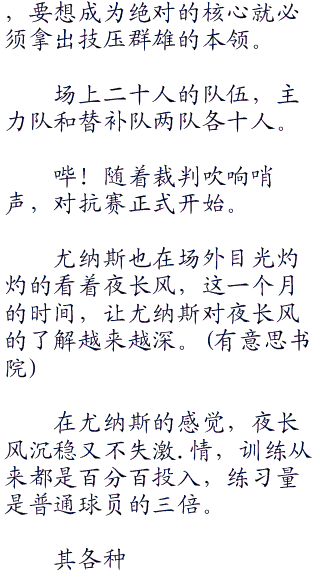 ，要想成为绝对的核心就必
须拿出技压群雄的本领。
场上二十人的队伍，主
力队和替补队两队各十人。
哔！随着裁判吹响哨
声，对抗赛正式开始。
尤纳斯也在场外目光灼
灼的看着夜长风，这一个月
的时间，让尤纳斯对夜长风
的了解越来越深。(有意思书
院)
在尤纳斯的感觉，夜长
风沉稳又不失激.情，训练从
来都是百分百投入，练习量
是普通球员的三倍。
其各种